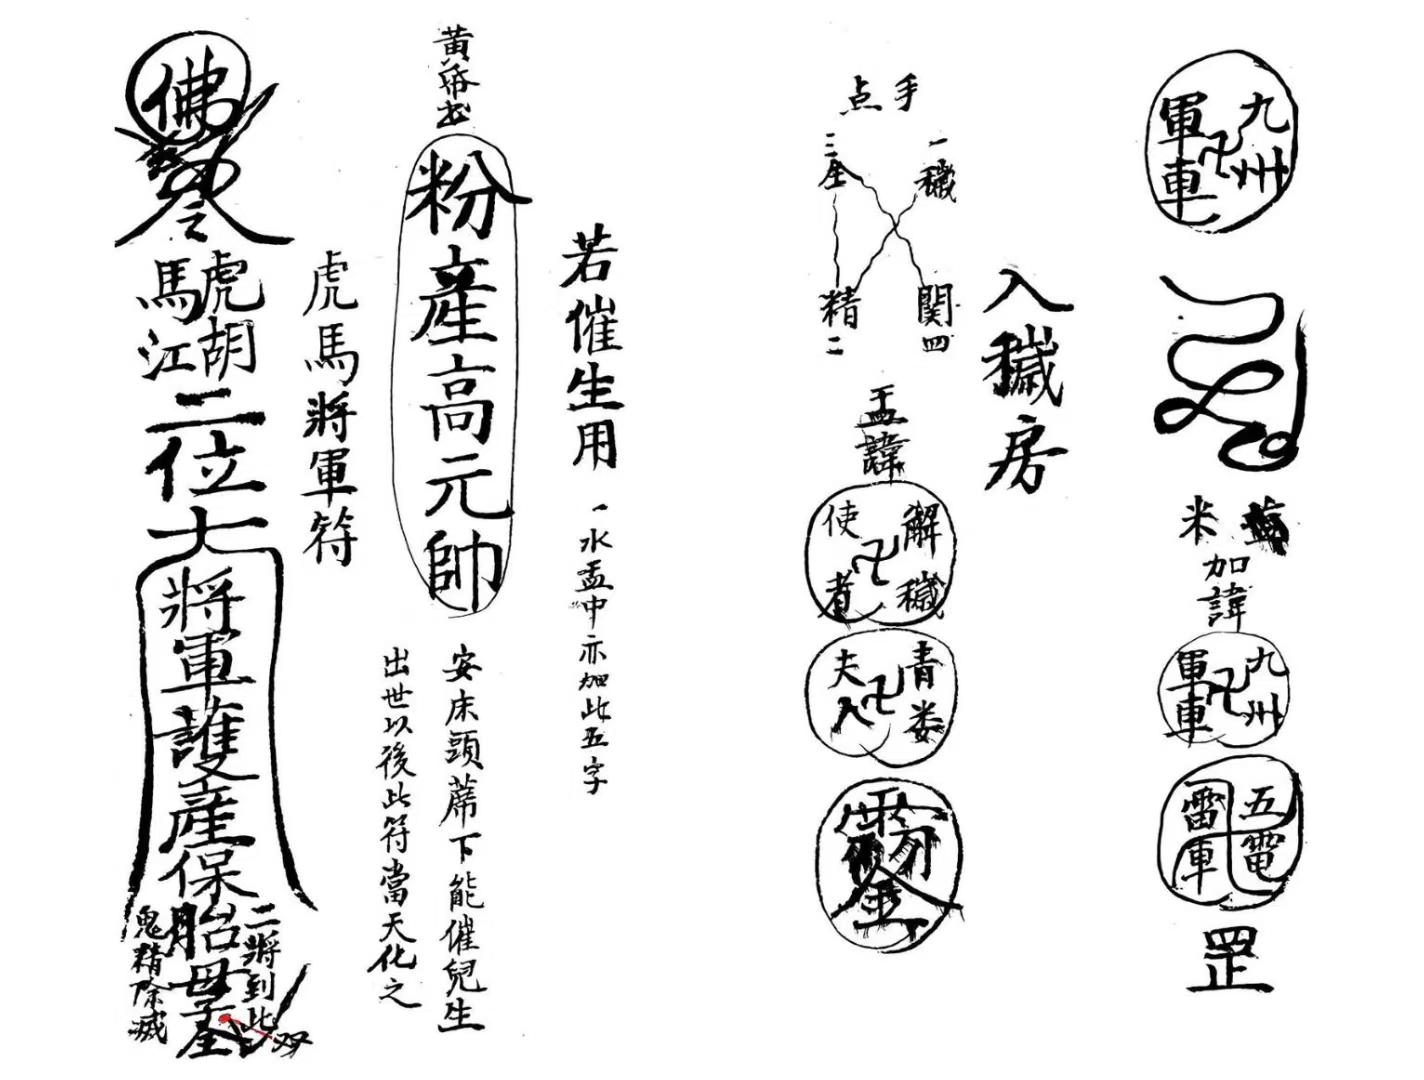 九州
卍
軍車
米
加諱
九州
卍
軍車
五電
雷車
罡
入穢房
手
点
一穢
三全
関四
精二
盂諱
解穢
卍
使者
青娄
卍
夫人
若催生用
一水盂中亦加此五字
黄昏书
粉產高元帥
安床頭蓆下能催兒生
出世以後此符當天化之
虎馬將軍符
佛
令
虎胡
馬江
二位大將軍護產保胎母子全
二將到此
鬼精除滅